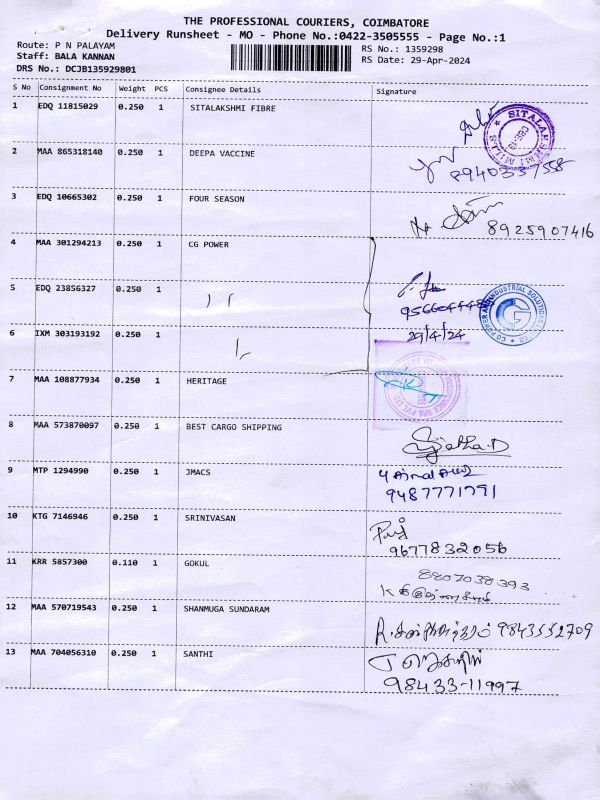 THE PROFESSIONAL COURIERS, COIMBATORE
Delivery Runsheet - MO - Phone No.:0422-3505555 - Page No.:1
Route: P N PALAYAM
RS No.: 1359298
Staff: BALA KANNAN
RS Date: 29-Apr-2024
DRS No.: DCJB135929801
S No Consignment No Weight PCS Consignee Details Signature
1 EDQ 11815029 0.250 1 SITALAKSHMI FIBRE
2 MAA 865318140 0.250 1 DEEPA VACCINE
8940337558
3 EDQ 10665302 0.250 1 FOUR SEASON
8925907416
4 MAA 301294213 0.250 1 CG POWER
5 EDQ 23856327 0.250 1
29/4/24
6 IXM 303193192 0.250 1
7 MAA 108877934 0.250 1 HERITAGE
8 MAA 573870097 0.250 1 BEST CARGO SHIPPING
9 MTP 1294990 0.250 1 JMACS
9487771791
10 KTG 7146946 0.250 1 SRINIVASAN
9677832056
11 KRR 5857300 0.110 1 GOKUL
8807038393
12 MAA 570719543 0.250 1 SHANMUGA SUNDARAM
9843552709
13 MAA 704056310 0.250 1 SANTHI
98433-11997